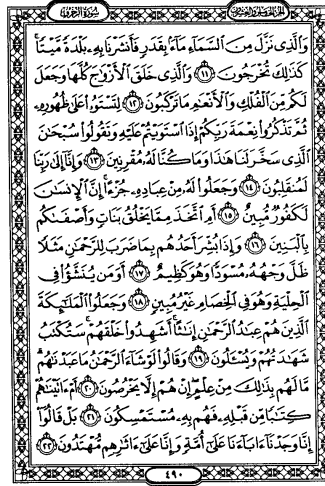 سورة الزخرف
الجزء الخامس والعشرون
والذي نزل من السماء ماء بقدر فأنشرنا به بلدة ميتا
كذلك تخرجون ١١ والذي خلق الأزواج كلها وجعل
لكم من الفلك والأنعم ما تركبون ١٢ لتستوا على ظهوره
ثم تذكروا نعمة ربكم إذا استويتم عليه وتقولوا سبحن
الذي سخر لنا هذا وما كنا له مقرنين ١٣ وإنا إلى ربنا
لمنقلبون ١٤ وجعلوا له من عباده جزءا إن الإنسن
لكفور مبين ١٥ أم اتخذ مما يخلق بنات وأصفىكم
بالبنين ١٦ وإذا بشر أحدهم بما ضرب للرحمن مثلا
ظل وجهه مسودا وهو كظيم ١٧ أومن ينشؤا في
الحلية وهو في الخصام غير مبين ١٨ وجعلوا الملئكة
الذين هم عبد الرحمن إنثا أشهدوا خلقهم ستكتب
شهدتهم ويسئلون ١٩ وقالوا لو شاء الرحمن ما عبدنهم
ما لهم بذلك من علم إن هم إلا يخرصون ٢٠ أم ءاتينهم
كتبا من قبله فهم به مستمسكون ٢١ بل قالوا
إنا وجدنا ءاباءنا على أمة وإنا على ءاثرهم مهتدون ٢٢
٤٩٠